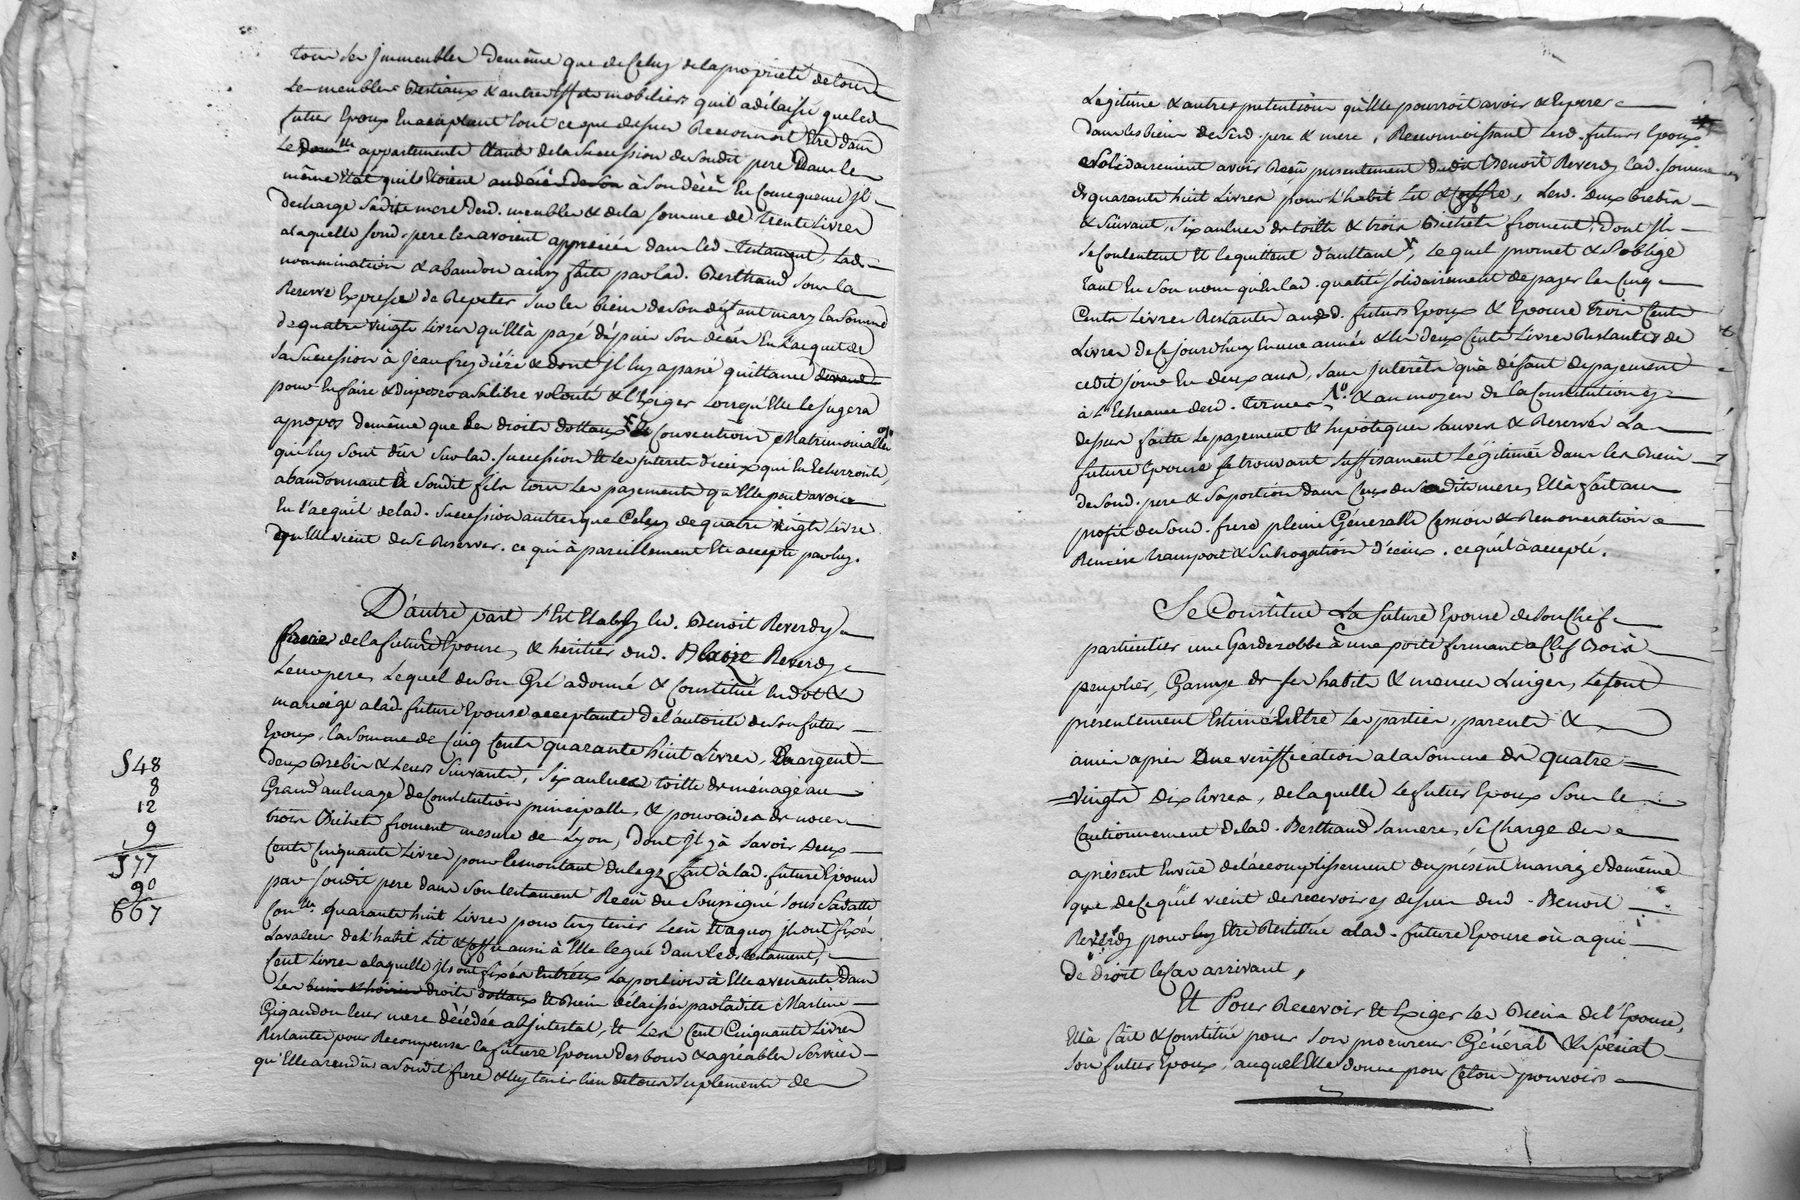 tous ses jmmeubles demême que de Celuy de la proprieté de tous
Les meubles Bestiaux & autres effets mobiliers quil a délaissé que led
futur Epoux En acceptant tout ce que dessus Reconnoit Etre dans
Le appartements de la Succession de soudit pere Dans le
même Etat quils Etoient à Son décès En Consequence jl
decharge Sadite mere desd. meubles & de la somme de trente Livres
a laquelle sond. pere les avoient appreciés dans led. testament, Lad.
nommination & abandon ainsy faite par lad. Berthaud sous la
Reserve Expresse de Repeter Sur les biens de son défunt mary la Somme
de quatre vingts Livres qu'Ellà payé dépuis son décès En l'acquit de
sa succession à jean freydière & dont jl luy a passé quittance
pour En faire & disposer a sa libre volonté & l'Exiger Lorsqu'Elle le jugera
apropos demême que les droits Conventions Matrimonialles
qui luy sont dûs sur lad. succession Et les jnterets d'iceux qui En Echerront,
abandonnant à Soudit fils tous les payements qu'Elle peut avoir
En l'acquit de lad. succession autres que Celuy de quatre vingts Livres
qu'Elle vient de se Reserver. ce qui à pareillement Eté accepté par luy.
D'autre part s'Est Etably led. Benoit Reverdy
frere de la future Epouse, & héritier dud. Blaize Reverdy
Leur pere, Lequel de son Gré a donné & Constitué En dot &
mariage a lad. future Epouse acceptante de l'autorité de son futur
Epoux, la Somme de Cinq Cents quarante huit Livres, En argent
deux Brebis & Leurs Suivants, Six aulnes toille de ménage au
Grand aulnage de Constitution principalle, &
trois Bichets froment mesure de Lyon, Dont jl y à Savoir Deux
Cents Cinquante Livres pour le montant du legs fait à lad. future Epouse
par soudit pere dans son testament Reçu du Soussigné sous Sa datte
Conlé, quarante huit Livres pour luy tenir Lieu Et aquoy jls ont fixés
La valeur de l'habit Lit & Coffre aussi à Elle legué dans led. testament,
Cent Livres a laquelle jls ont fixés la portion à Elle avenante Dans
Les droits Et Biens délaissés par Ladite Martine
Gigandon leur mere décédée abjntestat, Et Les Cent Cinquante Livres
Restantes pour Recompenser la future Epouse Des bons & agréables Services
qu'Elle a rendu a Soudit frere & luy tenir lieu de tous Suplements de
548
8
12
9
577
90
667
Légitime & autres pretentions qu'Elle pourroit avoir & Esperer
Dans les biens de sesd. pere & mere, Reconnoissant Lesd. futurs Epoux
Solidairement avoir Reçu presentement dudit Benoit Reverdy Lad. Somme
de quarante huit Livres pour l'habit Lit & Coffre, Lesd. Deux brebis
& Suivant, Six aulnes de toille & trois Bichets froment, Dont jls
se Contentent Et le quittent d'aultant, Lequel promet & s'oblige
tant En son nom qu'En lad. qualité solidairement de payer les Cinq
Cents Livres Restantes auxd. futurs Epoux & Epouse Trois Cents
Livres de Ce jourd'huy En une année & les Deux Cents Livres Restantes de
cedit jour En deux ans, Sans jnterêts qu'à défaut de payement
à l'Echeance desd. termes, & au moyen de la Constitution cy
dessus faitte Le payement & hipotequer Sauves & Reservés La
future Epouse se trouvant suffisament Légitimée dans les Biens
de Sond. pere & Sa portion Dans Ceux de sadite mere, Ellà fait au
profit de sond. frere pleine Généralle Cession & Renonciation
Remise transport & Subrogation d'iceux. ce qu'il à accepté.
Se Constitue La future Epouse de son Chef
particulier une Garderobbe à une porte fermant a Clef Bois
peuplier, Garnye de ses habits & menus Linges, Le tout
présentement Estimé Entre Les parties, parents &
amis après Une vériffication a la Somme de quatre
vingts Dix Livres, de laquelle Le futur Epoux Sous le
Cautionnement de lad. Berthaud Sa mere, Se Charge dès
aprésent En vûe de l'accomplissement du présent mariage demême
que de Ce qu'il vient de recevoir cy dessus dud. Benoit
Reverdy pour luy Etre Restitué a lad. future Epouse ou a qui
De droit le Cas arrivant,
Et Pour Recevoir Et Exiger les Biens de l'Epouse,
Ellà fait & Constitué pour son procureur Général & Spécial
Son futur Epoux, auquel Elle donne pour Ce tous pouvoirs